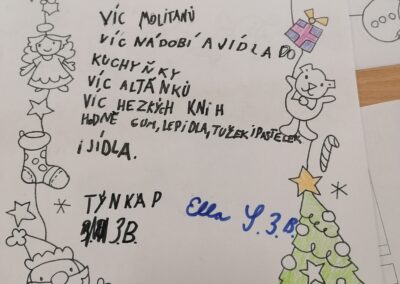 VÍC MOLITANŮ
VÍC NÁDOBÍ A JÍDLA DO
KUCHYŇKY
VÍC ALTÁNKŮ
VÍC HEZKÝCH KNIH
HODNĚ GUM, LEPIDLA, TUŽEK I PASTELEK
I JÍDLA.
TÝNKA P
3.B.
Ella Y. 3.B.